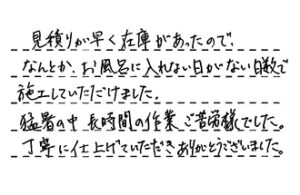 見積りが早く在庫があったので、
なんとか、お風呂に入れない日がない日数で
施工していただけました。
猛暑の中 長時間の作業 ご苦労様でした。
丁寧に仕上げていただきありがとうございました。